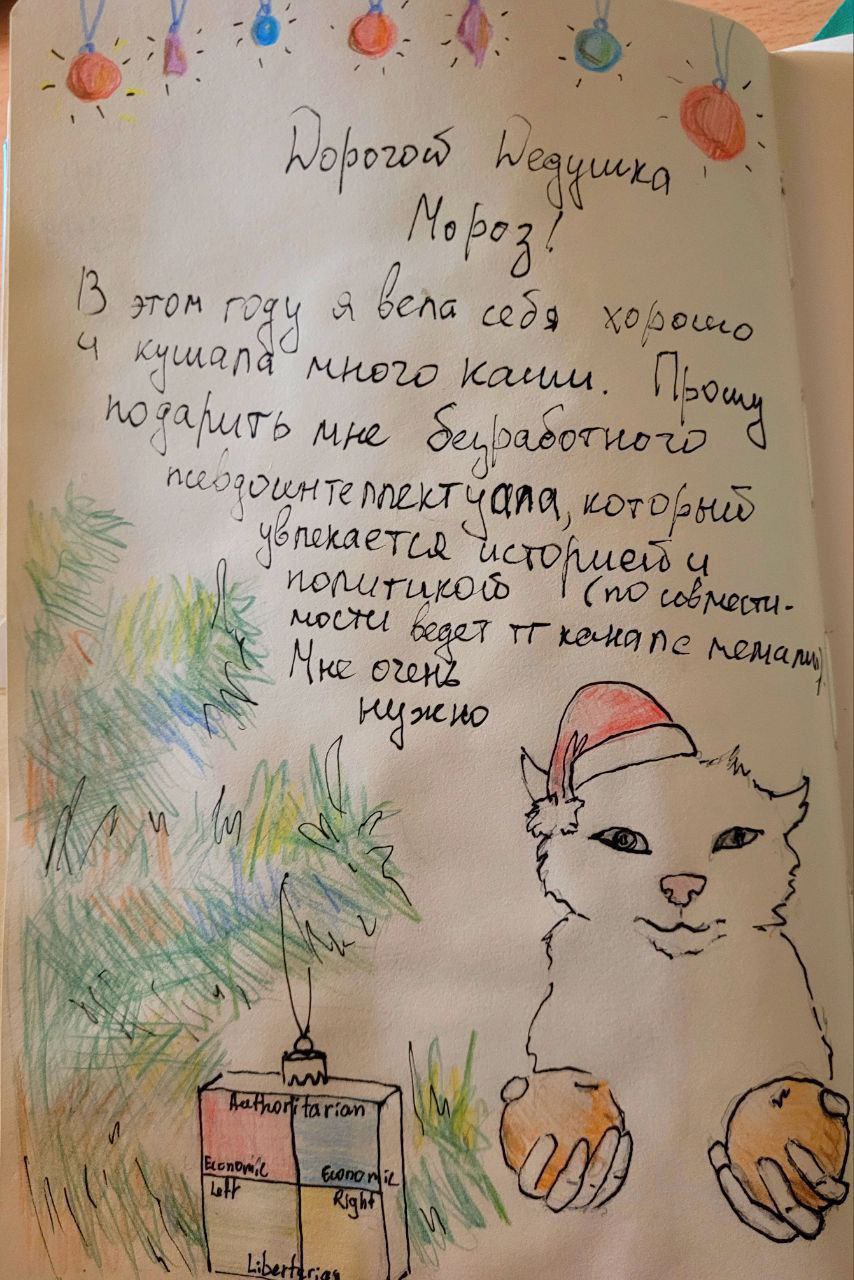 Дорогой Дедушка
Мороз!
В этом году я вела себя хорошо
и кушала много каши. Прошу
подарить мне безработного
псевдоинтеллектуала, который
увлекается историей и
политикой (по совмести-
мости ведет тг канал с мемами)
Мне очень
нужно
Authoritarian
Economic Economic
Left Right
Libertarian